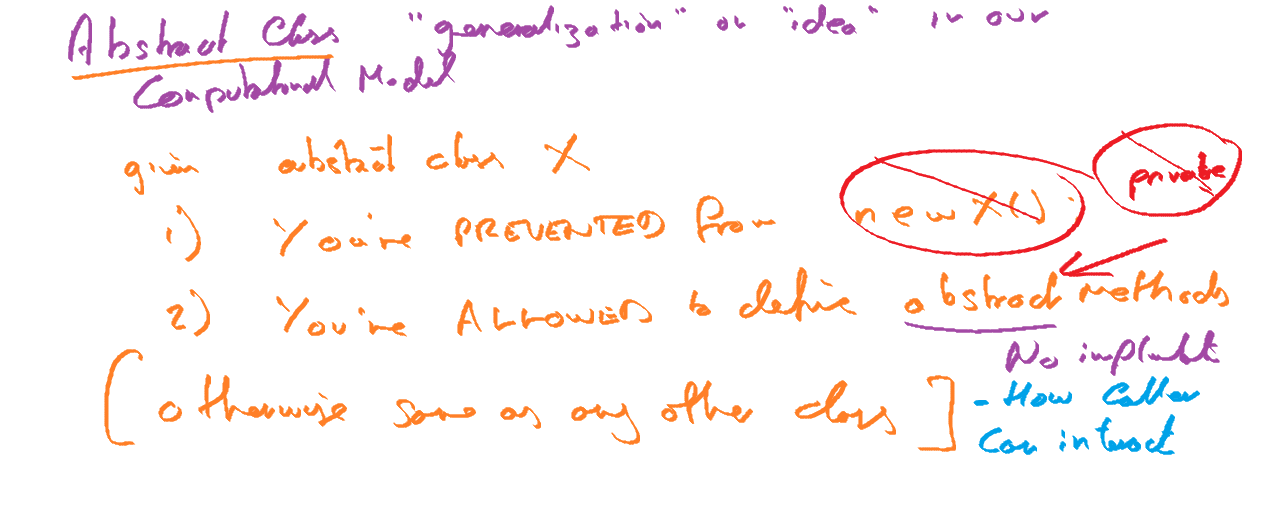 Abstract Class "generalization" or "idea" in our
Computational Model
given abstract class X
private
1) You're PREVENTED from new X()
2) You're ALLOWED to define abstract methods
No implmt
[otherwise same as any other class]
- How Caller
Can interact